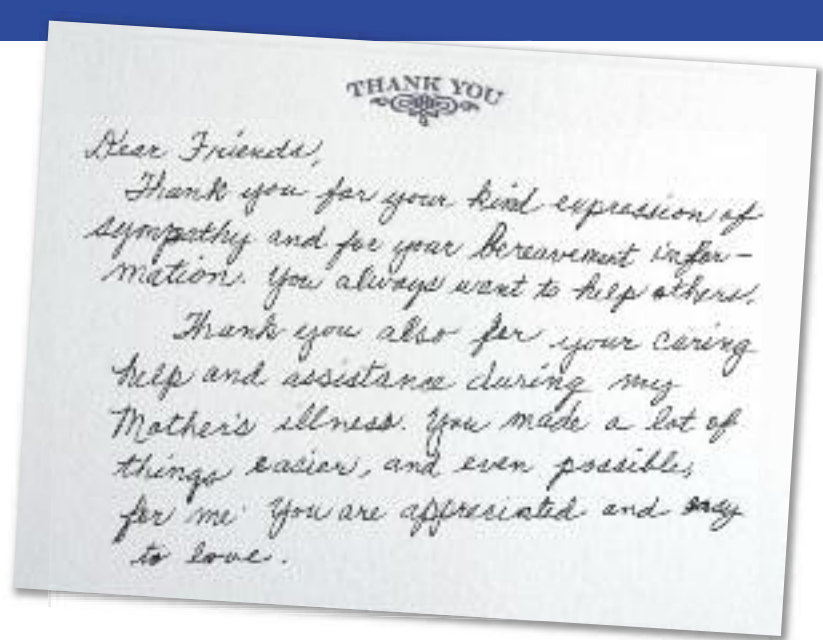 THANK YOU
Dear Friends,
Thank you for your kind expression of
sympathy and for your bereavement infor-
mation. You always want to help others.
Thank you also for your caring
help and assistance during my
Mother's illness. You made a lot of
things easier, and even possible,
for me. You are appreciated and easy
to love.